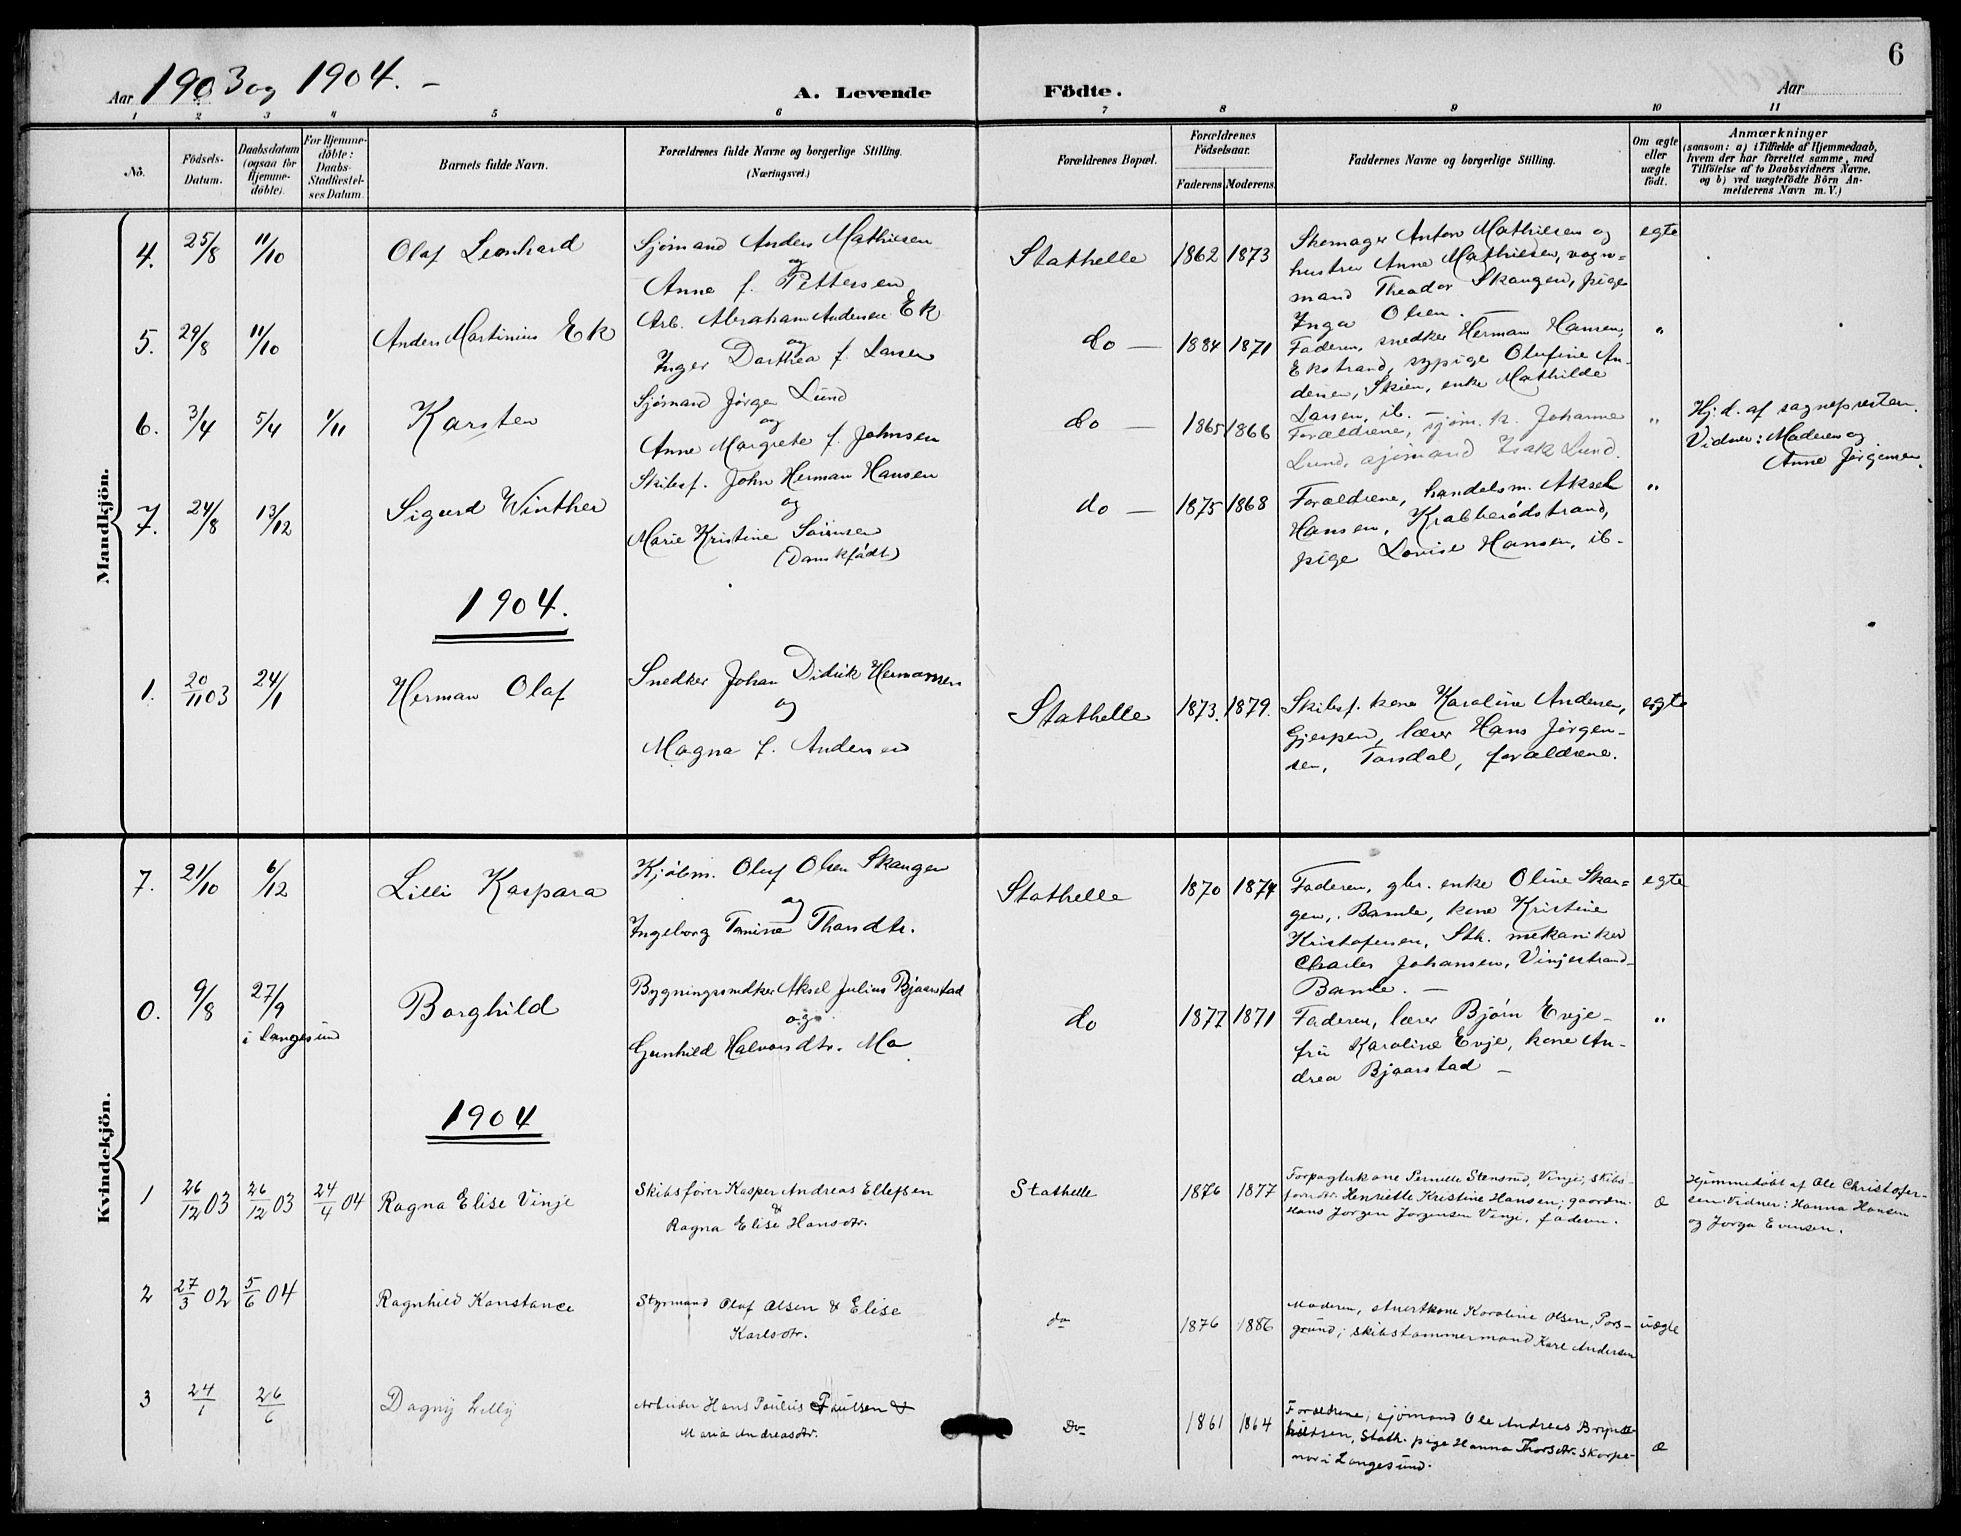 6
Aar 1903 og 1904. –
A. Levende Födte.
Aar
1 2 3 4 5 6 7 8 9 10 11
No.
Födsels-
Datum.
Daabsdatum
(ogsaa for
Hjemme-
döbte).
For Hjemme-
döbte:
Daabs-
Stadfæstel-
ses Datum.
Barnets fulde Navn.
Forældrenes fulde Navne og borgerlige Stilling.
(Næringsvei.)
Forældrenes Bopæl.
Forældrenes
Födselsaar.
Faderens. Moderens.
Faddernes Navne og borgerlige Stilling.
Om ægte
eller
uægte
födt.
Anmærkninger
(saasom: a) i Tilfælde af Hjemmedaab,
hvem der har forrettet samme, med
Tilföielse af to Daabsvidners Navne,
og b) ved uægtefödte Börn An-
melderens Navn m. V.)
Mandkjön.
4. 25/8 11/10 Olaf Leonhard
Sjømand Anders Mathiesen
og
Anne f. Pettersen
Stathelle 1862 1873
Skomager Anton Mathiesen og
hustru Anne Mathiesen, vogn=
mand Theodor Skaugen, pige
Inga Olsen.
egte
5. 29/8 11/10 Anders Martinius Ek
Arb. Abraham Andersen Ek
og
Inger Dorthea f. Larsen
do — 1884 1871
Faderen, snedker Herman Hansen,
Ekstrand, sypige Olufine An-
dersen, Skien, enke Mathilde
Larsen, ib.
"
6. 3/4 5/4 1/11 Karsten
Sjømand Jørgen Lund
og
Anne Margrete f. Johnsen
do — 1865 1866
Forældrene, sjøm. k. Johanne
Lund, sjømand Isak Lund.
"
Hj. d. af sognepresten.
Vidner: Moderen og
Anne Jørgensen.
7. 24/8 13/12 Sigurd Winther
Skibsf. John Herman Hansen
og
Marie Kristine Sørensen
(Danskfødt)
do — 1875 1868
Forældrene, handelsm. Aksel
Hansen, Krabberødstrand,
pige Lovise Hansen, ib.
"
1904.
1. 20/11 03 24/1 Herman Olaf
Snedker Johan Didrik Hermansen
og
Magna f. Andersen
Stathelle 1873. 1879.
Skibsf. kone Karoline Andersen,
Gjerpen, lærer Hans Jørgen-
sen, Tørsdal, forældrene.
egte
Kvindekjön.
7. 21/10 6/12 Lilli Kaspara
Kjølm. Oluf Olsen Skaugen
og
Ingeborg Tomine Thorsdtr.
Stathelle 1870 1874
Faderen, gbr. enke Oline Skau=
gen, Bamle, kone Kristine
Kristofersen, Sth. mekaniker
Charles Johansen, Vinjestrand
Bamle. —
egte
0. 9/8 27/9 Borghild
i Langesund
Bygningssnedker Aksel Julius Bjaarstad
og
Gunhild Halvorsdtr. Mo
do 1877 1871
Faderen, lærer Bjørn Evje-
fru Karoline Evje, kone An-
drea Bjaarstad —
"
1904
1 26/12 03 26/12 03 24/4 04 Ragna Elise Vinje
Skibsfører Kasper Andreas Ellefsen
&
Ragna Elise Hansdtr.
Stathelle 1876 1877
Forpagterkone Pernille Stensrud, Vinje; skibs-
førerdtr. Henriette Kristine Hansen; gaardm.
Hans Jørgen Jørgensen Vinje, faderen.
æ
Hjemmedøbt af Ole Christofer-
sen. Vidner: Hanna Hansen
og Jørga Evensen.
2 27/3 02 5/6 04 Ragnhild Konstance
Styrmand Olaf Olsen & Elise
Karlsdtr.
do 1876 1886
Moderen, stuertkone Karoline Olsen, Pors-
grund; skibstømmermand Karl Andersen
uægte
3 24/1 26/6 Dagny Lilly
Arbeider Hans Paulus Paulsen &
Maria Andreasdtr.
Do 1861 1864
Forældrene; sjømand Ole Andreas
Stath. pige Hanna Thorsdtr. Skorpe-
nor i Langesund.
æ